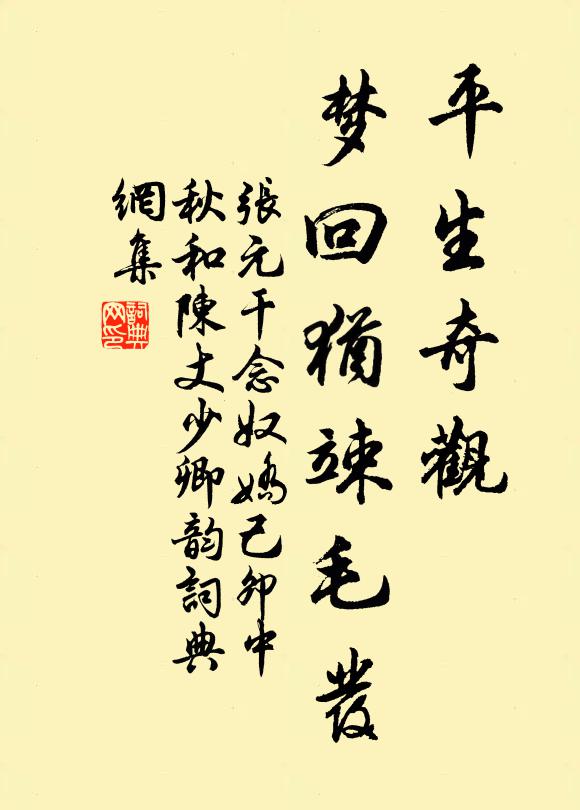 平生奇觀
梦回猶竦毛發
張元干念奴嬌己卯中
秋和陳丈少卿韵詞典
網集
詞典
网印